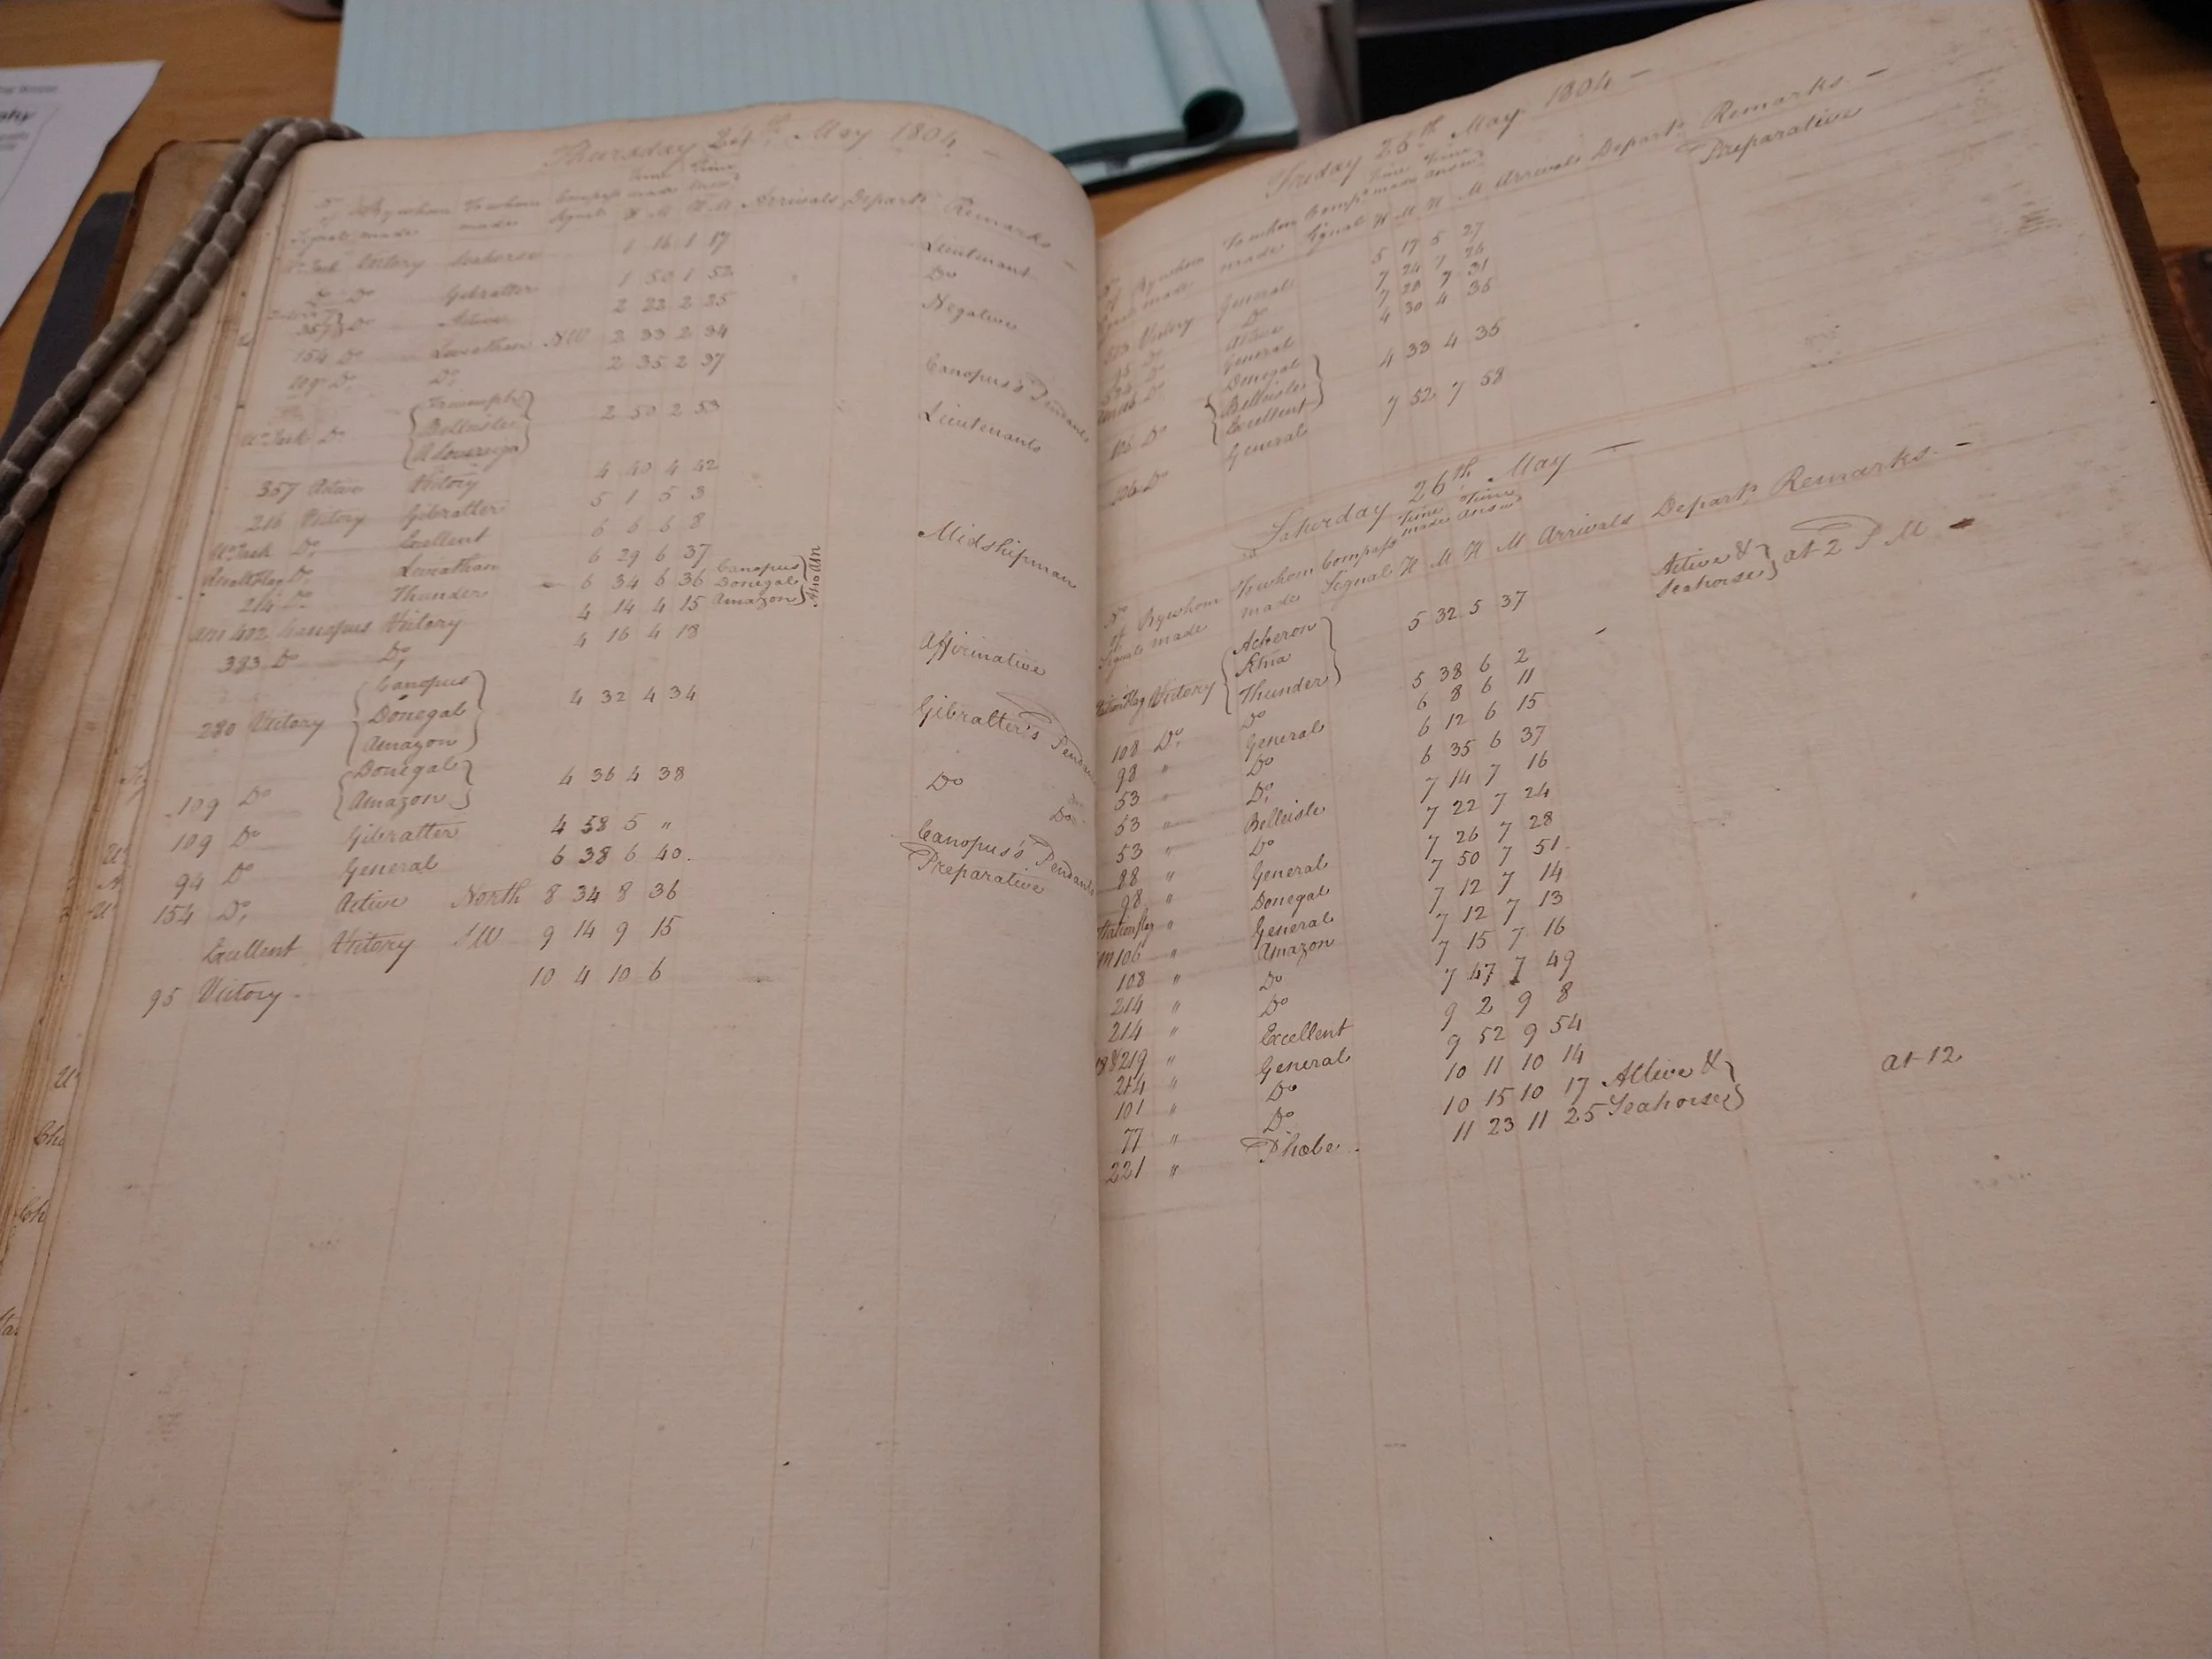 Thursday 24th May 1804 —
No of Signals By whom made To whom made Compass Signals Time made H M Time Answd H M Arrivals Depart: Remarks —
Un: Jack Victory Seahorse 1 16 1 17 Lieutenant
Do Do Gibralter 1 50 1 52 Do
357 Do Active 2 22 2 25 Negative
154 Do Leviathan NW 2 33 2 34
109 Do Do 2 35 2 37 Canopus's Pendants
Un: Jack Do { Triumph Belleisle R Sovereign } 2 50 2 53 Lieutenants
357 Active Victory 4 40 4 42
216 Victory Gibralter 5 1 5 3
Un: Jack Do Excellent 6 6 6 8 Midshipman
Do Leviathan 6 29 6 37
214 Do Thunder 6 34 6 36 Canopus Donegal Amazon }
AM 402 Canopus Victory 4 14 4 15
383 Do Do 4 16 4 18 Affirmative
280 Victory { Canopus Donegal Amazon } 4 32 4 34 Gibralter's Pendants
109 Do { Donegal Amazon } 4 36 4 38 Do
109 Do Gibralter 4 58 5 " Canopus's Pendants
94 Do General 6 38 6 40 Preparative
154 Do Active North 8 34 8 36
Excellent Victory SW 9 14 9 15
95 Victory 10 4 10 6
Friday 25th May 1804 —
No of Signals By whom made To whom made Compss Signal Time made H M Time Answ H M Arrivals Depart: Remarks —
Victory General 5 17 5 27 Preparative
Do Do 7 24 7 26
Do Active 7 28 7 31
Do General 4 30 4 36
106 Do { Donegal Belleisle Excellent } 4 33 4 35
106 Do General 7 52 7 58
Saturday 26th May —
No of Signals By whom made To whom made Compass Signal Time made H M Time Answ H M Arrivals Depart: Remarks —
Station Flag Victory { Acheron Etna Thunder } 5 32 5 37 Active & Seahorse } at 2 P M —
108 Do Do 5 38 6 2
98 " General 6 8 6 11
53 " Do 6 12 6 15
53 " Do 6 35 6 37
53 " Belleisle 7 14 7 16
88 " Do 7 22 7 24
98 " General 7 26 7 28
Station flag " Donegal 7 50 7 51
AM 106 " General 7 12 7 14
108 " Amazon 7 12 7 13
214 " Do 7 15 7 16
214 " Do 7 47 7 49
& 219 " Excellent 9 2 9 8
" General 9 52 9 54
101 " Do 10 11 10 14
77 " Do 10 15 10 17 Active & Seahorse } at 12
221 " Phœbe 11 23 11 25